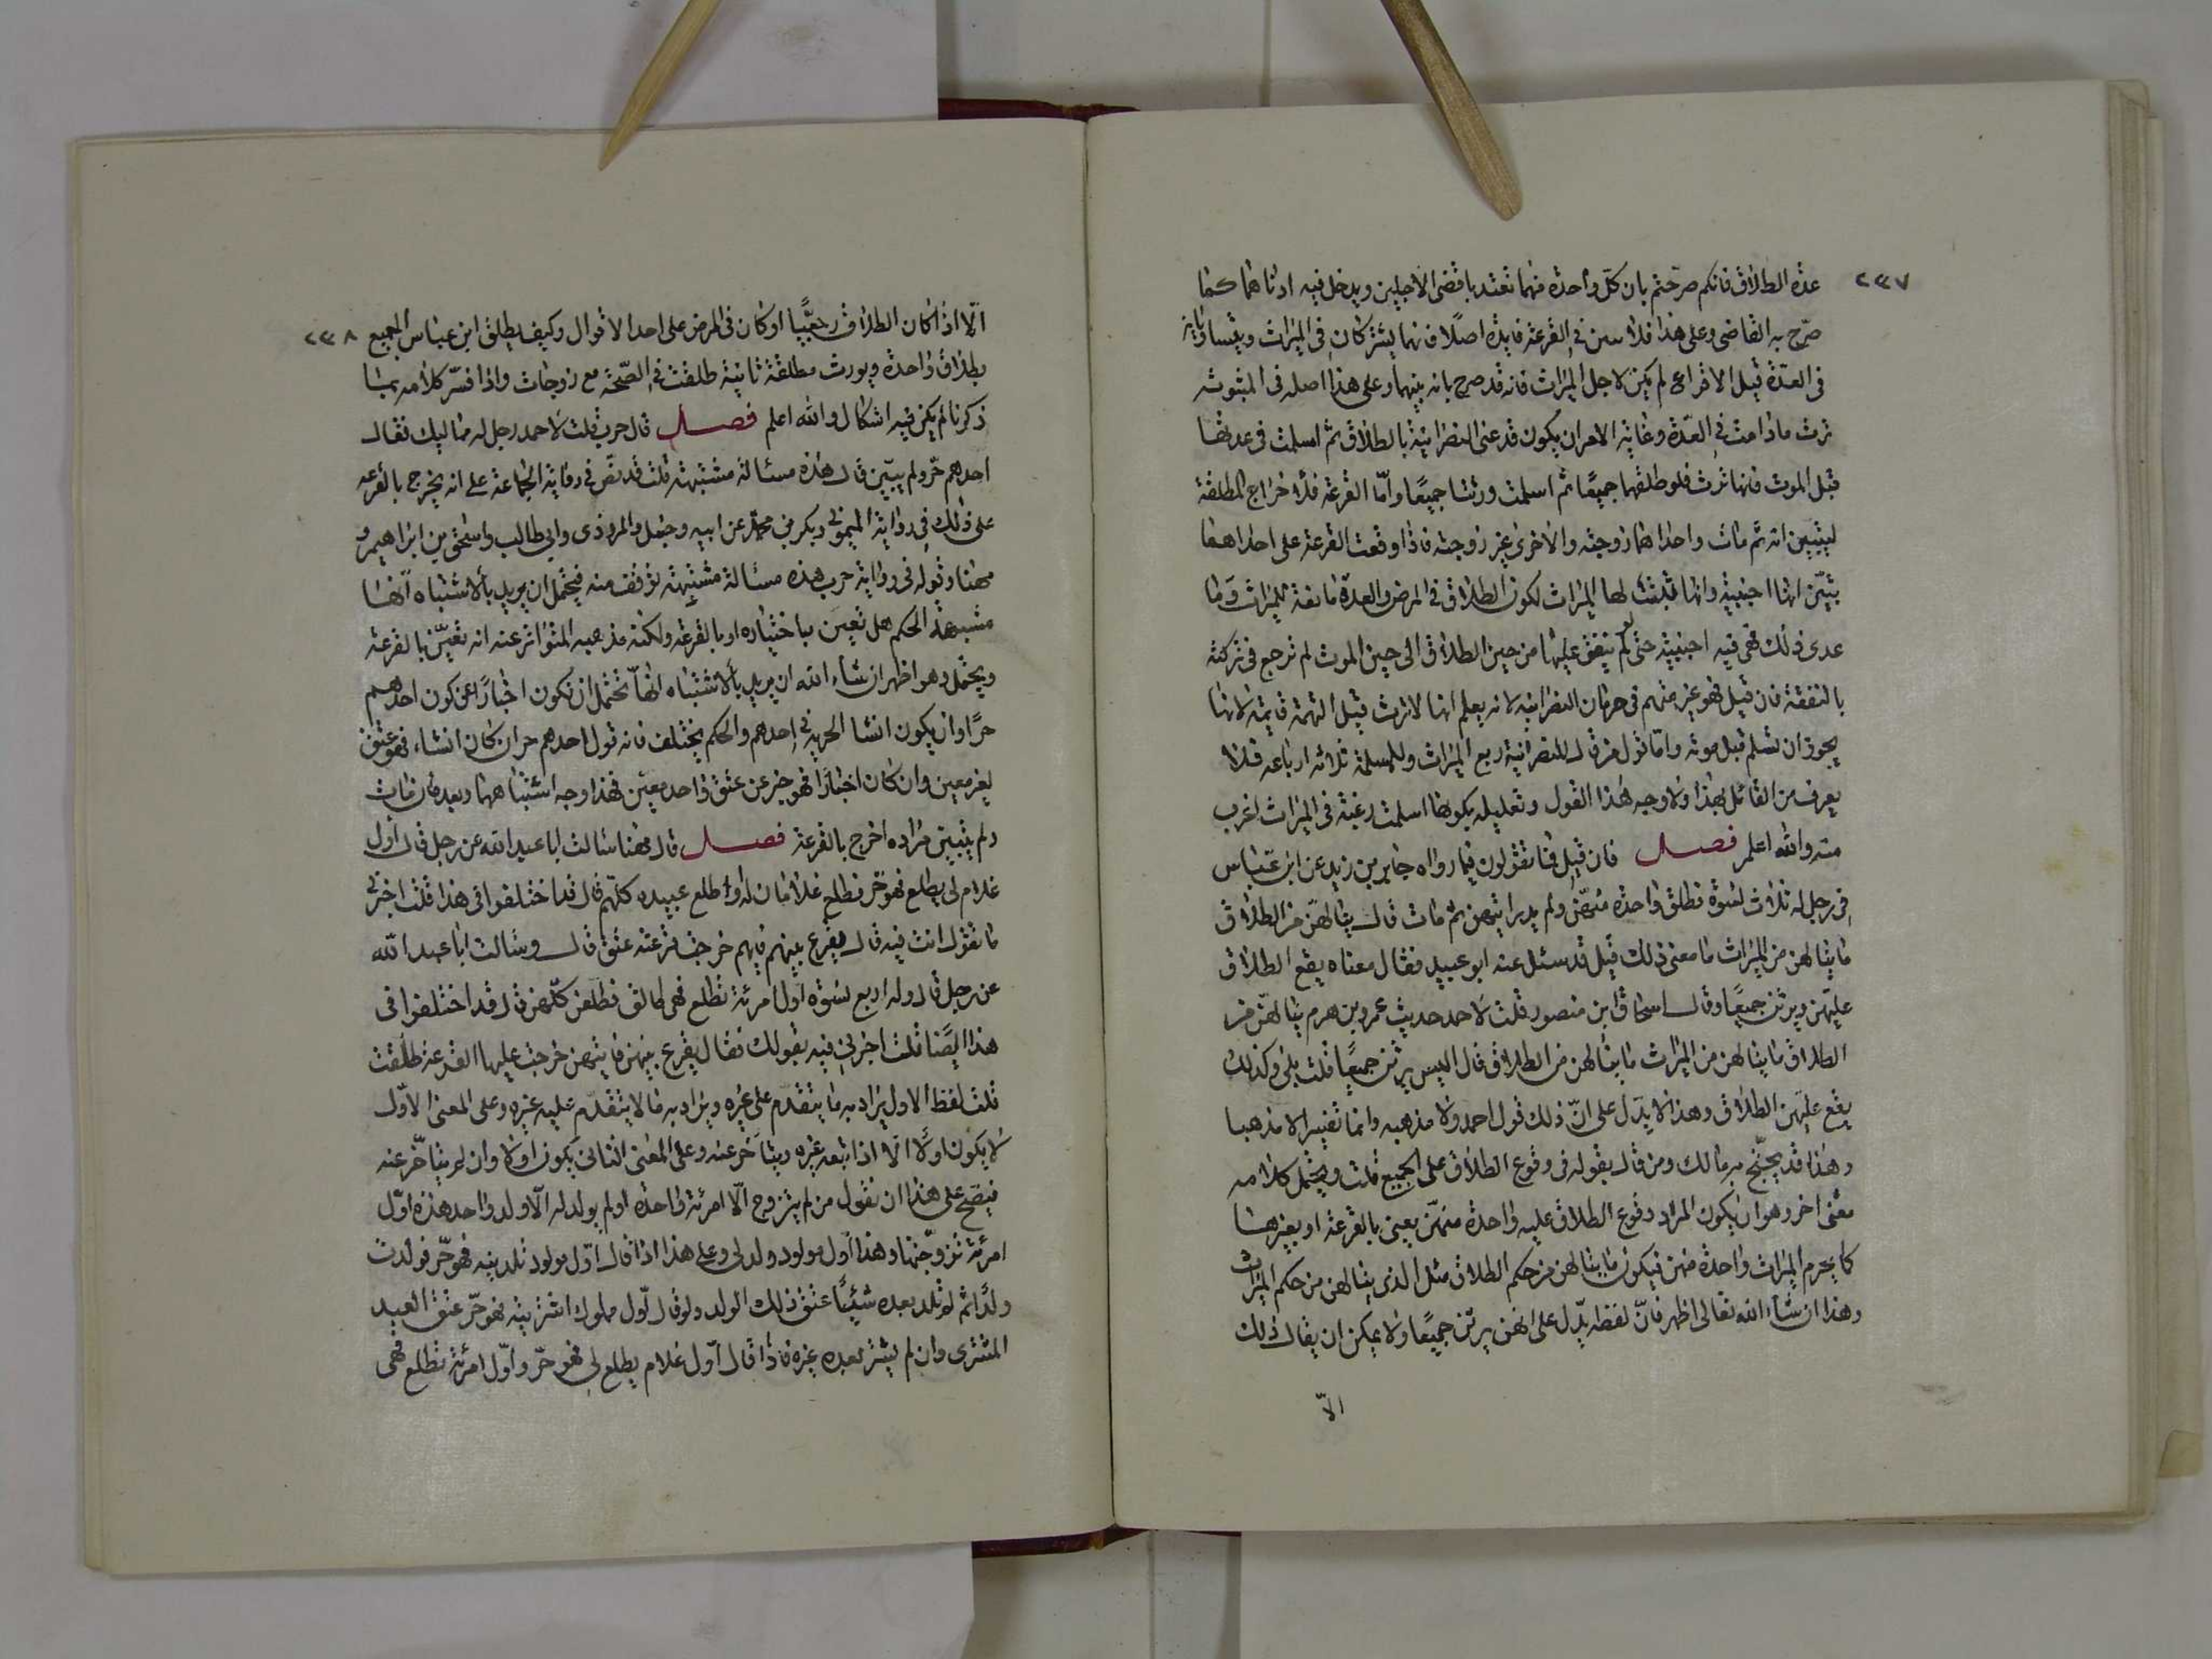 ٢٣٧
عدة الطلاق فانكم صرحتم بان كل واحدة منهما تعتد باقضى الاجلين ويدخل فيه ادناهما كما
صرح به القاضى وعلى هذا فلا سن فى القرعة فايدة اصلا فانهما يشتركان فى الميراث ويتساويان
فى العدة قيل الاقراع لم يكن لاجل الميراث فانه قد صرح بانه بينهما وعلى هذا اصله فى المبتوتة
ترث مادامت فى العدة وغاية الامر ان يكون قد عنى النصرانية بالطلاق ثم اسلمت فى عدتها
قبل الموت فانها ترث فلو طلقهما جميعا ثم اسلمت ورثتا جميعا وامّا القرعة فلاخراج المطلقة
ليتبين انه ثم مات واحداهما زوجته والاخرى غير زوجته فاذا وقعت القرعة على احداهما
تبيّن انها اجنبية وانها لها الميراث لكون الطلاق فى المرض والعدة مانعة للميراث وما
عدى ذلك فهى فيه اجنبية حتى لو لم ينفق عليها من حين الطلاق الى حين الموت لم ترجع فى تركته
بالنفقة فان قيل فهو غير متهم فى حرمان النصرانية لانه يعلم انها لا ترث قيل التهمة قايمة لانها
يجوز ان تسلم قبل موته وامّا قول من قال للنصرانية ربع الميراث وللمسلمة ثلاثة ارباعه فلا
يعرف من القائل بهذا ولا وجه لهذا القول وتعليله بكونها اسلمت رغبة فى الميراث اغرب
منه والله اعلم فصل فان قيل فما تقولون فيما رواه جابر بن زيد عن ابن عبّاس
فى رجل له ثلاث نسوة فطلق واحدة منهن ولم يدر ايتهن ثم مات قال ينالهن من الطلاق
ما ينالهن من الميراث ما معنى ذلك قيل قد سئل عنه ابو عبيد فقال معناه يقع الطلاق
عليهن ويرثن جميعا وقال اسحاق ابن منصور قلت لاحمد حديث عمرو بن هرم ينالهن من
الطلاق ما ينالهن من الميراث ما ينالهن من الطلاق قال اليس يرثن جميعا قلت بلى وكذلك
يقع عليهن الطلاق وهذا لا يدل على انّ ذلك قول احمد ولا مذهبه وانما تفسيرا لا مذهبا
وهذا قد يحتج به مالك ومن قال بقوله فى وقوع الطلاق على الجميع قلت ويحتمل كلامه
معنى اخر وهو ان يكون المراد وقوع الطلاق عليه واحدة منهن يعنى بالقرعة او بغيرها
كما يحرم الميراث واحدة منهن فيكون ما ينالهن من حكم الطلاق مثل الذى ينالهن من حكم الميراث
وهذا ان شاء الله تعالى اظهر فانّ لفظه يدل على انهن يرثن جميعا ولا يمكن ان يقال ذلك
الاّ
٢٣٨
الاّ اذا كان الطلاق رجعيّا او كان فى المرض على احد الاقوال وكيف يطلق ابن عباس الجميع
بطلاق واحدة ويورث مطلقة ثانية طلقت فى الصحة مع زوجات واذا فسّر كلامه بما
ذكرنا لم يكن فيه اشكال والله اعلم فصل قال حرب قلت لاحمد رجل له مماليك فقال
احدهم حرّ ولم يبيّن قال هذه مسئالة مشتبهة قلت قد نصّ فى رواية الجماعة على انه يخرج بالقرعة
على ذلك فى رواية الميمونى وبكر بن محمد عن ابيه وحنبل والمروذى وابى طالب واسحق بن ابراهيم و
مهنا وقوله فى رواية حرب هذه مسئالة مشتبهة توقف منه فيحتمل ان يريد بالاشتباه انها
مشتبهة الحكم هل تعين باختياره او بالقرعة ولكنه مذهبه المتواتر عنه انه تعيّن بالقرعة
ويحتمل وهو اظهر ان شاء الله ان يريد بالاشتباه انها تحتمل ان تكون اخبارا عن كون احدهم
حرّا وان يكون انشا الحرية فى احدهم والحكم يختلف فانه قول احدهم حر ان كان انشاء فهو عتق
لغير معين وان كان اخبارا فهو خبر عن عتق واحد معين فهذا وجه اشتباهها وبعد فان مات
ولم يتبين مراده اخرج بالقرعة فصل قال مهنا سالت ابا عبد الله عن رجل قال اول
غلام لى يطلع فهو حرّ فطلع غلامان له او طلع عبيده كلهم قال قد اختلفوا فى هذا قلت اخبرنى
ما تقول انت فيه قال يقرع بينهم فايهم خرجت قرعته عتق قال وسالت ابا عبد الله
عن رجل قال وله اربع نسوة اول امرئة تطلع فهى طالق فطلعن كلهن قال قد اختلفوا فى
هذا ايضا قلت اخبرنى فيه بقولك فقال يقرع بينهن فايتهن خرجت عليها القرعة طلقت
قلت لفظ الاول يراد به ما يتقدم على غيره ويراد به ما لا يتقدم عليه غيره وعلى المعنى الاوّل
لا يكون اولا الا اذا تبعه غيره وتاخر عنه وعلى المعنى الثانى يكون اولا وان لم يتاخر عنه
فيصح على هذا ان تقول من لم يتزوج الاّ امرئة واحدة او لم يولد له الاّ ولد واحد هذه اوّل
امرئة تزوجتها وهذا اول مولود ولد لى وعلى هذا اذا قال اول مولود تلدينه فهو حرّ فولدت
ولدا ثم لم تلد بعده شيئا عتق ذلك الولد ولو قال اول مملوك اشتريته فهو حرّ عتق العبد
المشترى وان لم يشتر بعده غيره فاذا قال اوّل غلام يطلع لى فهو حرّ واوّل امرئة تطلع فهى